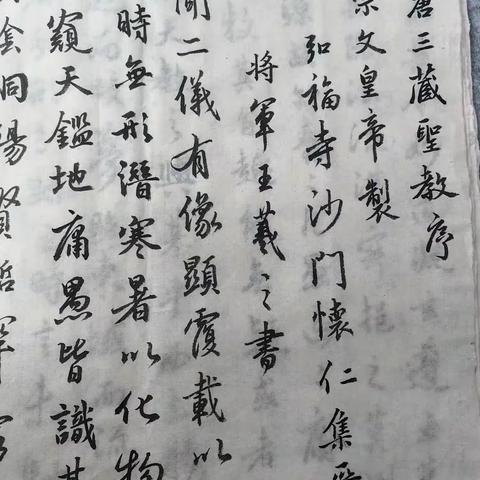 唐三藏聖教序
宗文皇帝製
弘福寺沙門懷仁集晉
將軍王羲之書
聞二儀有像顯覆載以
時無形潛寒暑以化物
窺天鑑地庸愚皆識其
陰洞陽賢哲罕窮